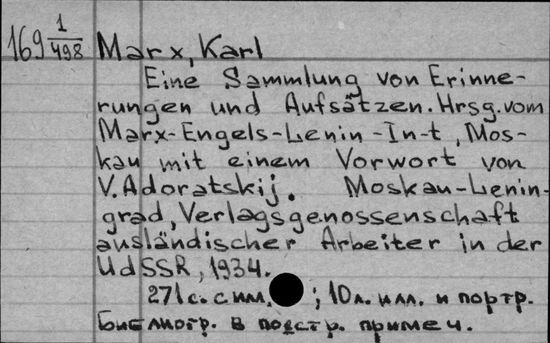 169 1/498 Marx, Karl
Eine Sammlung von Erinne-
rungen und Aufsätzen. Hrsg. vom
Marx-Engels-Lenin-In-t, Mos-
kau mit einem Vorwort von
V. Adoratskij. Moskau-Lenin-
grad, Verlagsgenossenschaft
ausländischer Arbeiter in der
UdSSR, 1934.
271 с. с илл. ; 10 л. илл. и портр.
Библиогр. в подстр. примеч.